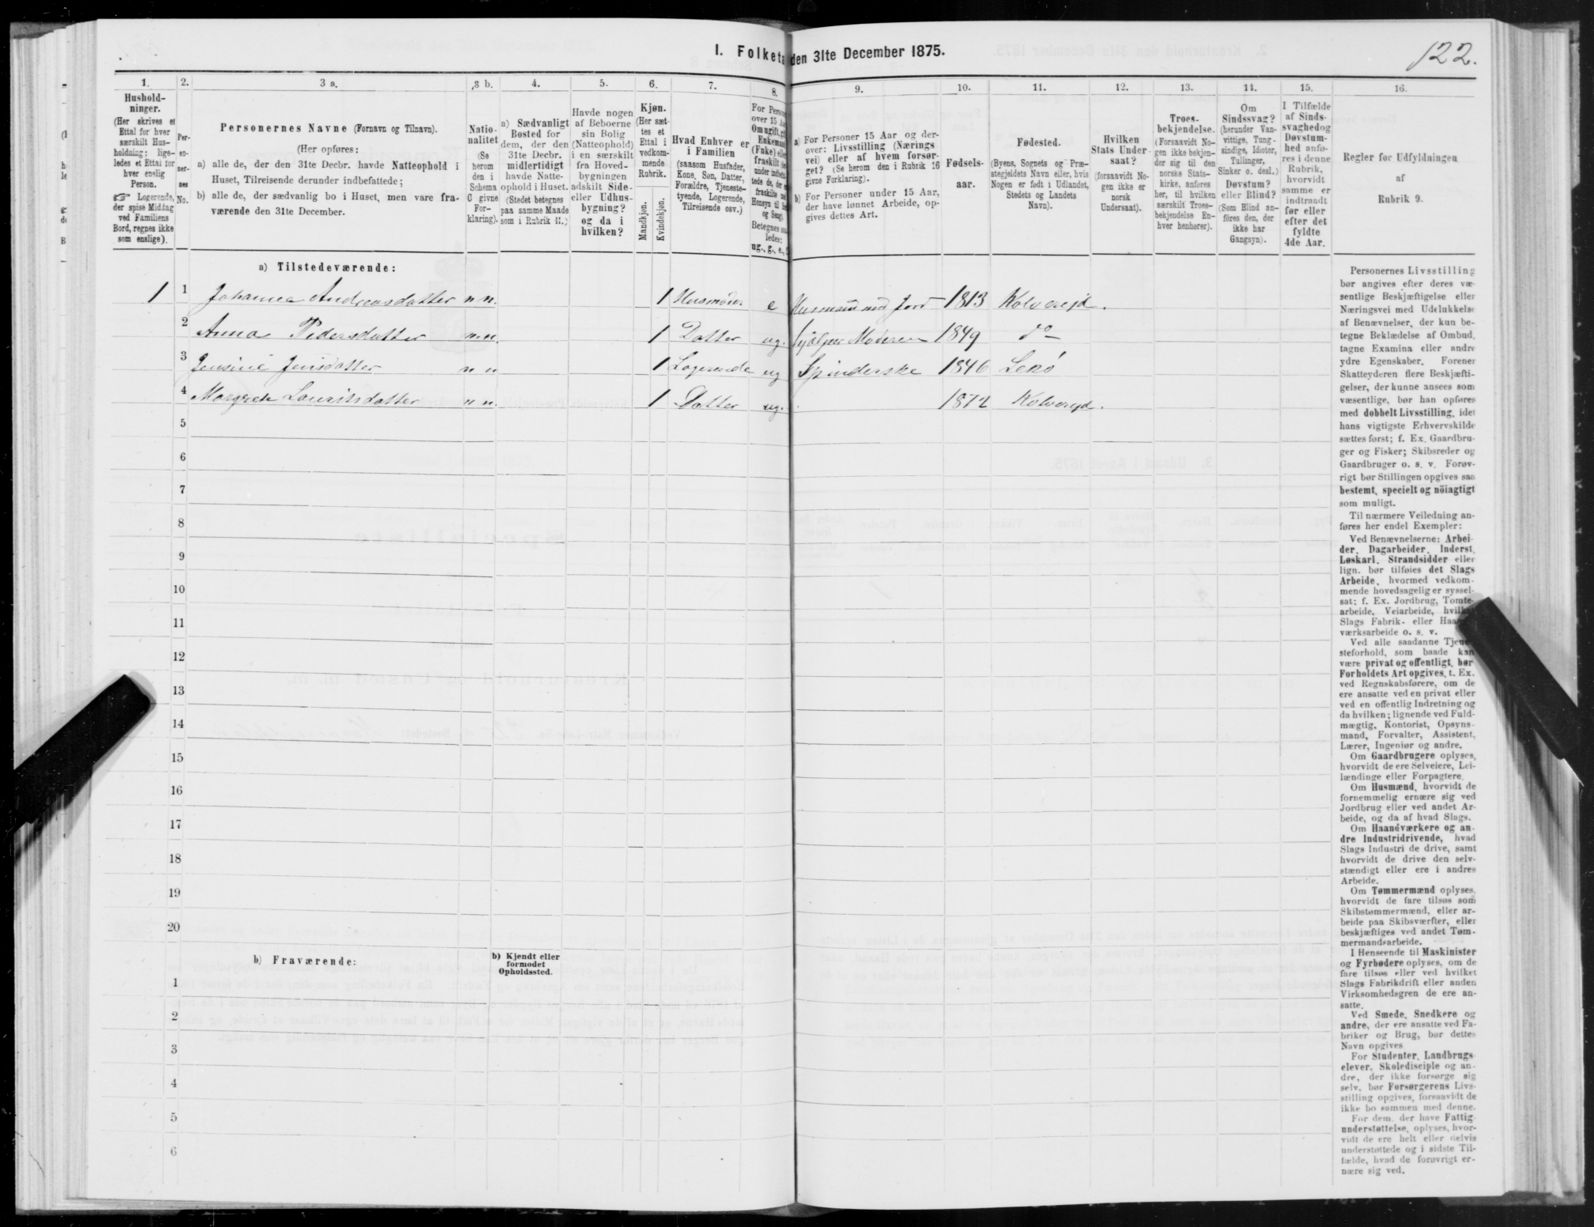 I. Folketa den 31te December 1875.
122.
1.
Hushold-
ninger.
(Her skrives et
Ettal for hver
særskilt Hus-
holdning; lige-
ledes et Ettal for
hver enslig
Person.
☞ Logerende,
der spise Middag
ved Familiens
Bord, regnes ikke
som enslige).
2.
Per-
so-
ner-
nes
No.
3 a.
Personernes Navne (Fornavn og Tilnavn).
(Her opføres:
a) alle de, der den 31te Decbr. havde Natteophold i
Huset, Tilreisende derunder indbefattede;
b) alle de, der sædvanlig bo i Huset, men vare fra-
værende den 31te December.
3 b.
Natio-
nalitet
(Se
herom
den i
Schema
C givne
For-
klaring).
4.
a) Sædvanligt
Bosted for
dem, der den
31te Decbr.
midlertidigt
havde Natte-
ophold i Huset.
(Stedet betegnes
paa samme Maade
som i Rubrik 11.)
5.
Havde nogen
af Beboerne
sin Bolig
(Natteophold)
i en særskilt
fra Hoved-
bygningen
adskilt Side-
eller Udhus-
bygning?
og da i
hvilken?
6.
Kjøn.
(Her sæt-
tes et
Ettal i
vedkom-
mende
Rubrik.
Mandkjøn.
Kvindekjøn.
7.
Hvad Enhver er
i Familien
(saasom Husfader,
Kone, Søn, Datter,
Forældre, Tjeneste-
tyende, Logerende,
Tilreisende osv.)
8.
ug., g., e.,
9.
a) For Personer 15 Aar og der-
over: Livsstilling (Nærings
vei) eller af hvem forsør-
get? (Se herom den i Rubrik 16
givne Forklaring).
b) For Personer under 15 Aar,
der have lønnet Arbeide, op-
gives dettes Art.
10.
Fødsels-
aar.
11.
Fødested.
(Byens, Sognets og Præ-
stegjeldets Navn eller, hvis
Nogen er født i Udlandet,
Stedets og Landets
Navn).
12.
Hvilken
Stats Under
saat?
(forsaavidt No-
gen ikke er
norsk
Undersaat).
13.
Troes-
bekjendelse.
(Forsaavidt No-
gen ikke bekjen-
der sig til den
norske Stats-
kirke, anføres
her, til hvilken
særskilt Troes-
bekjendelse En-
hver henhører).
14.
Om
Sindssvag?
(herunder Van-
vittige, Tung-
sindige, Idioter,
Tullinger,
Sinker o. desl.)
Døvstum?
eller Blind?
(Som Blind an-
føres den, der
ikke har
Gangsyn).
15.
I Tilfælde
af Sinds-
svaghedog
Døvstum-
hed anfø-
res i denne
Rubrik,
hvorvidt
samme er
indtraadt
før eller
efter det
fyldte
4de Aar.
16.
Regler før Udfyldningen
af
Rubrik 9.
a) Tilstedeværende:
1 1 Johanna Andreasdatter n n. 1 Husmoder e Husmand med Jord 1813 Kolvereid.
2 Anna Pedersdatter n.n. 1 Datter ug. hjælper Moderen 1849 do
3 Jensine Jensdatter n n 1 Logerende ug Spinderske 1846 Lekø
4 Margrete Lauritsdatter n n. 1 Datter ug. 1872 Kolvereid.
5
6
7
8
9
10
11
12
13
14
15
16
17
18
19
20
b) Fraværende:
b) Kjendt eller
formodet
Opholdssted.
1
2
3
4
5
6
Personernes Livsstilling
bør angives efter deres væ-
sentlige Beskjæftigelse eller
Næringsvei med Udelukkelse
af Benævnelser, der kun be-
tegne Beklædelse af Ombud,
tagne Examina eller andre
ydre Egenskaber. Forener
Skatteyderen flere Beskjæfti-
gelser, der kunne ansees som
væsentlige, bør han opføres
med dobbelt Livsstilling, idet
hans vigtigste Erhvervskilde
sættes først; f. Ex. Gaardbru-
ger og Fisker; Skibsreder og
Gaardbruger o. s. v. Forøv-
rigt bør Stillingen opgives saa
bestemt, specielt og nöiagtigt
som muligt.
Til nærmere Veiledning an-
føres her endel Exempler:
Ved Benævnelserne: Arbei-
der, Dagarbeider, Inderst,
Løskarl, Strandsidder eller
lign. bør tilføies det Slags
Arbeide, hvormed vedkom-
mende hovedsagelig er syssel-
sat; f. Ex. Jordbrug, Tomte-
arbeide, Veiarbeide,
Slags Fabrik- eller
værksarbeide o. s. v.
Ved alle saadanne
steforhold, som baade kan
være privat og offentligt, bør
Forholdets Art opgives, t. Ex.
ved Regnskabsførere, om de
ere ansatte ved en privat eller
ved en offentlig Indretning og
da hvilken; lignende ved Fuld-
mægtig, Kontorist, Opsyns-
mand, Forvalter, Assistent,
Lærer, Ingeniør og andre.
Om Gaardbrugere oplyses,
hvorvidt de ere Selveiere, Lei-
lændinge eller Forpagtere.
Om Husmænd, hvorvidt de
fornemmelig ernære sig ved
Jordbrug eller ved andet Ar-
beide, og da af hvad Slags.
Om Haandværkere og an-
dre Industridrivende, hvad
Slags Industri de drive, samt
hvorvidt de drive den selv-
stændigt eller ere i andres
Arbeide.
Om Tømmermænd oplyses,
hvorvidt de fare tilsøs som
Skibstømmermænd, eller ar-
beide paa Skibsværfter, eller
beskjæftiges ved andet Tøm-
mermandsarbeide.
I Henseende til Maskinister
og Fyrbødere oplyses, om de
fare tilsøs eller ved hvilket
Slags Fabrikdrift eller anden
Virksomhedsgren de ere an-
satte.
Ved Smede, Snedkere og
andre, der ere ansatte ved Fa-
briker og Brug, bør dettes
Navn opgives
For Studenter, Landbrugs
elever, Skoledisciple og an-
dre, der ikke forsørge sig
selv, bør Forsørgerens Livs-
stilling opgives, forsaavidt de
ikke bo sammen med denne.
For dem, der have Fattig-
understøttelse, oplyses, hvor-
vidt de ere helt eller delvis
understøttede og i sidste Til-
fælde, hvad de forøvrigt er-
nære sig ved.